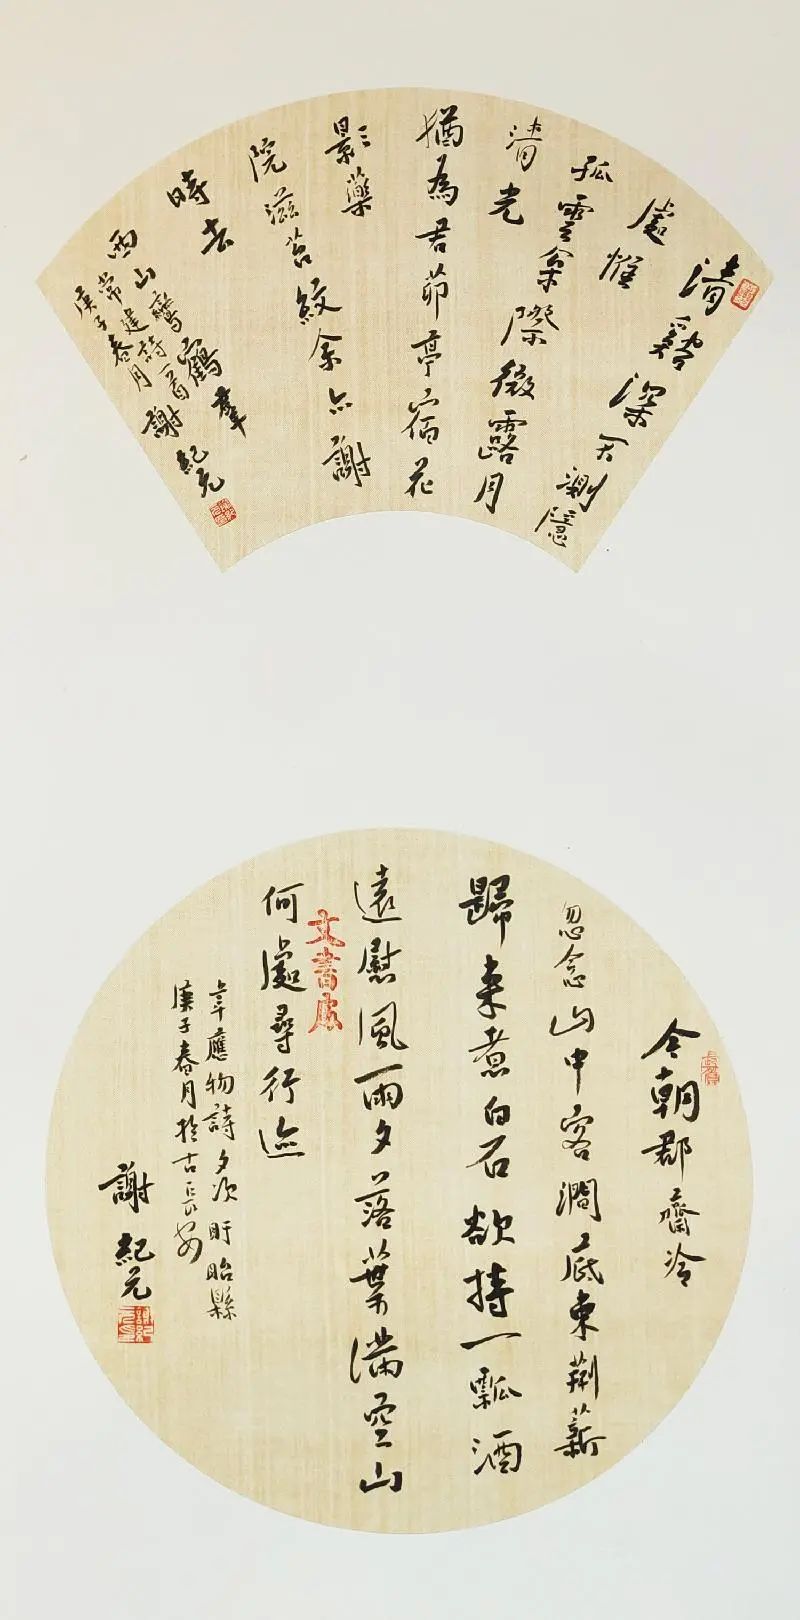 清谿深不測隱
處惟
孤雲枀際微露月
清光
猶為君茆亭宿花
影藥
院滋苔紋余亦謝
時去
西山鸞鶴羣
常建詩一首
庚子春月
謝紀元
今朝郡齋冷
忽念山中客澗底束荊薪
歸來煮白石欲持一瓢酒
遠慰風雨夕落葉滿空山
何處尋行迹
文書
韋應物詩夕次盱眙縣
庚子春月於古長安
謝紀元